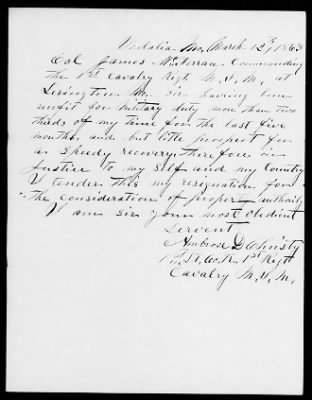 Sedalia Mo, March 12th, 1863
Col James McFerran Commanding
the 1st Cavalry Regt M.S.M. at
Lexington Mo. Sir having been
unfit for military duty more than two
thirds of my time for the last five
months, and but little prospect for
a speedy recovery. Therefore in
Justice to my Self and my Country
I tender this my resignation for
the consideration of proper authority
I am sir your most obedient
Servent
Ambrose D Christy
1st Lt. Co. K. 1st Regt
Cavalry M.S.M.